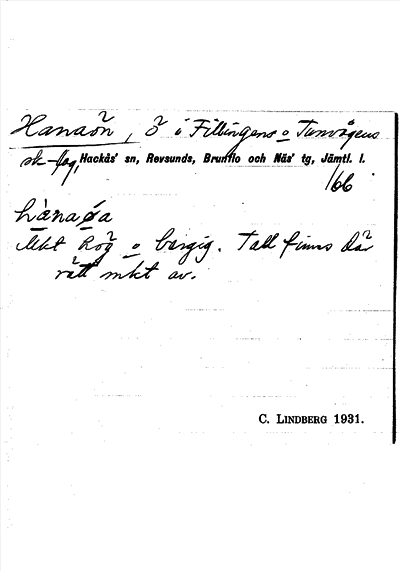 Hanaön, ö i Fillingens o Tunvågens
sk-lag, Hackås' sn, Revsunds, Brunflo och Näs' tg, Jämtl. l.
166
hànaøa
Mkt hög o bergig. Tall finns där
rätt mkt av.
C. LINDBERG 1931.